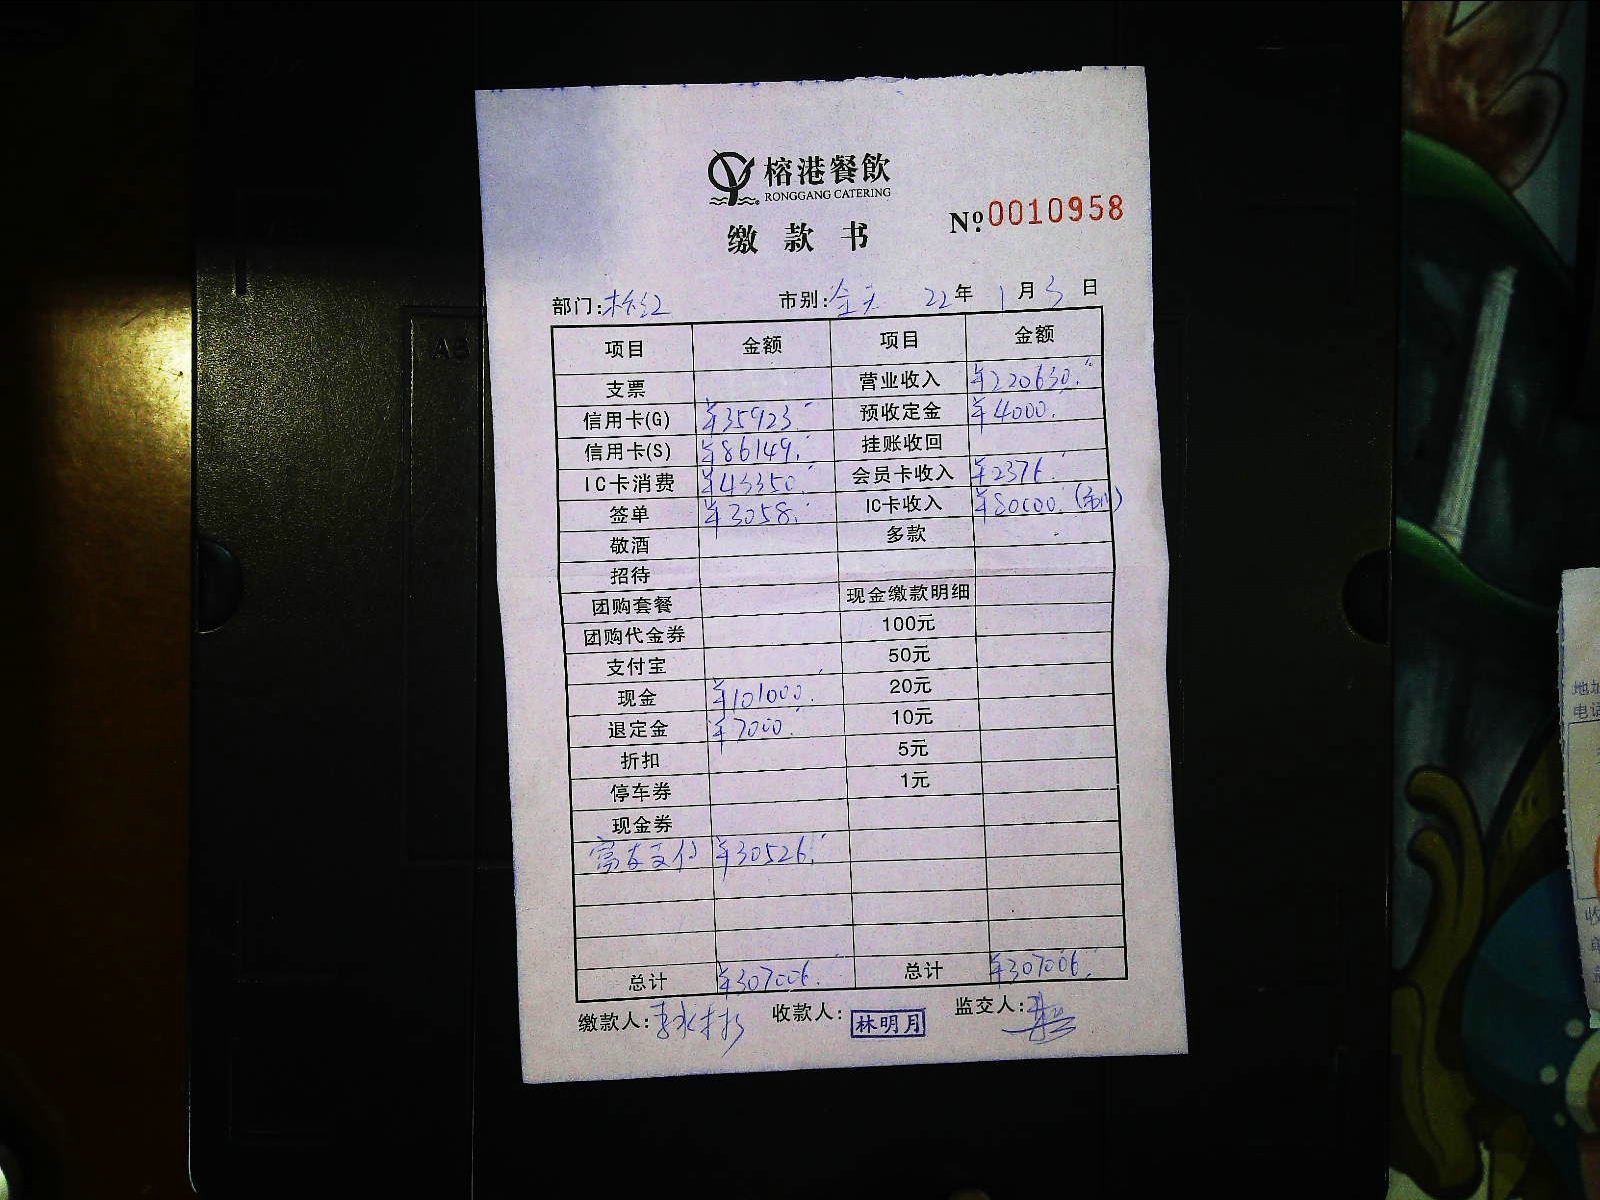 榕港餐飲
RONGGANG CATERING
缴款书
№ 0010958
部门: 市别:全天 22年1月3日
项目 金额 项目 金额
支票 营业收入 ¥220630.-
信用卡(G) ¥35923.- 预收定金 ¥4000.-
信用卡(S) ¥86149.- 挂账收回
IC卡消费 ¥43350.- 会员卡收入 ¥2376.-
签单 ¥3058.- IC卡收入 ¥80000.
敬酒 多款
招待
团购套餐 现金缴款明细
团购代金券 100元
支付宝 50元
现金 ¥101000.- 20元
退定金 ¥7000.- 10元
折扣 5元
停车券 1元
现金券
富友支付 ¥30526.-
总计 ¥307006.- 总计 ¥307006.-
缴款人: 收款人:林明月 监交人: